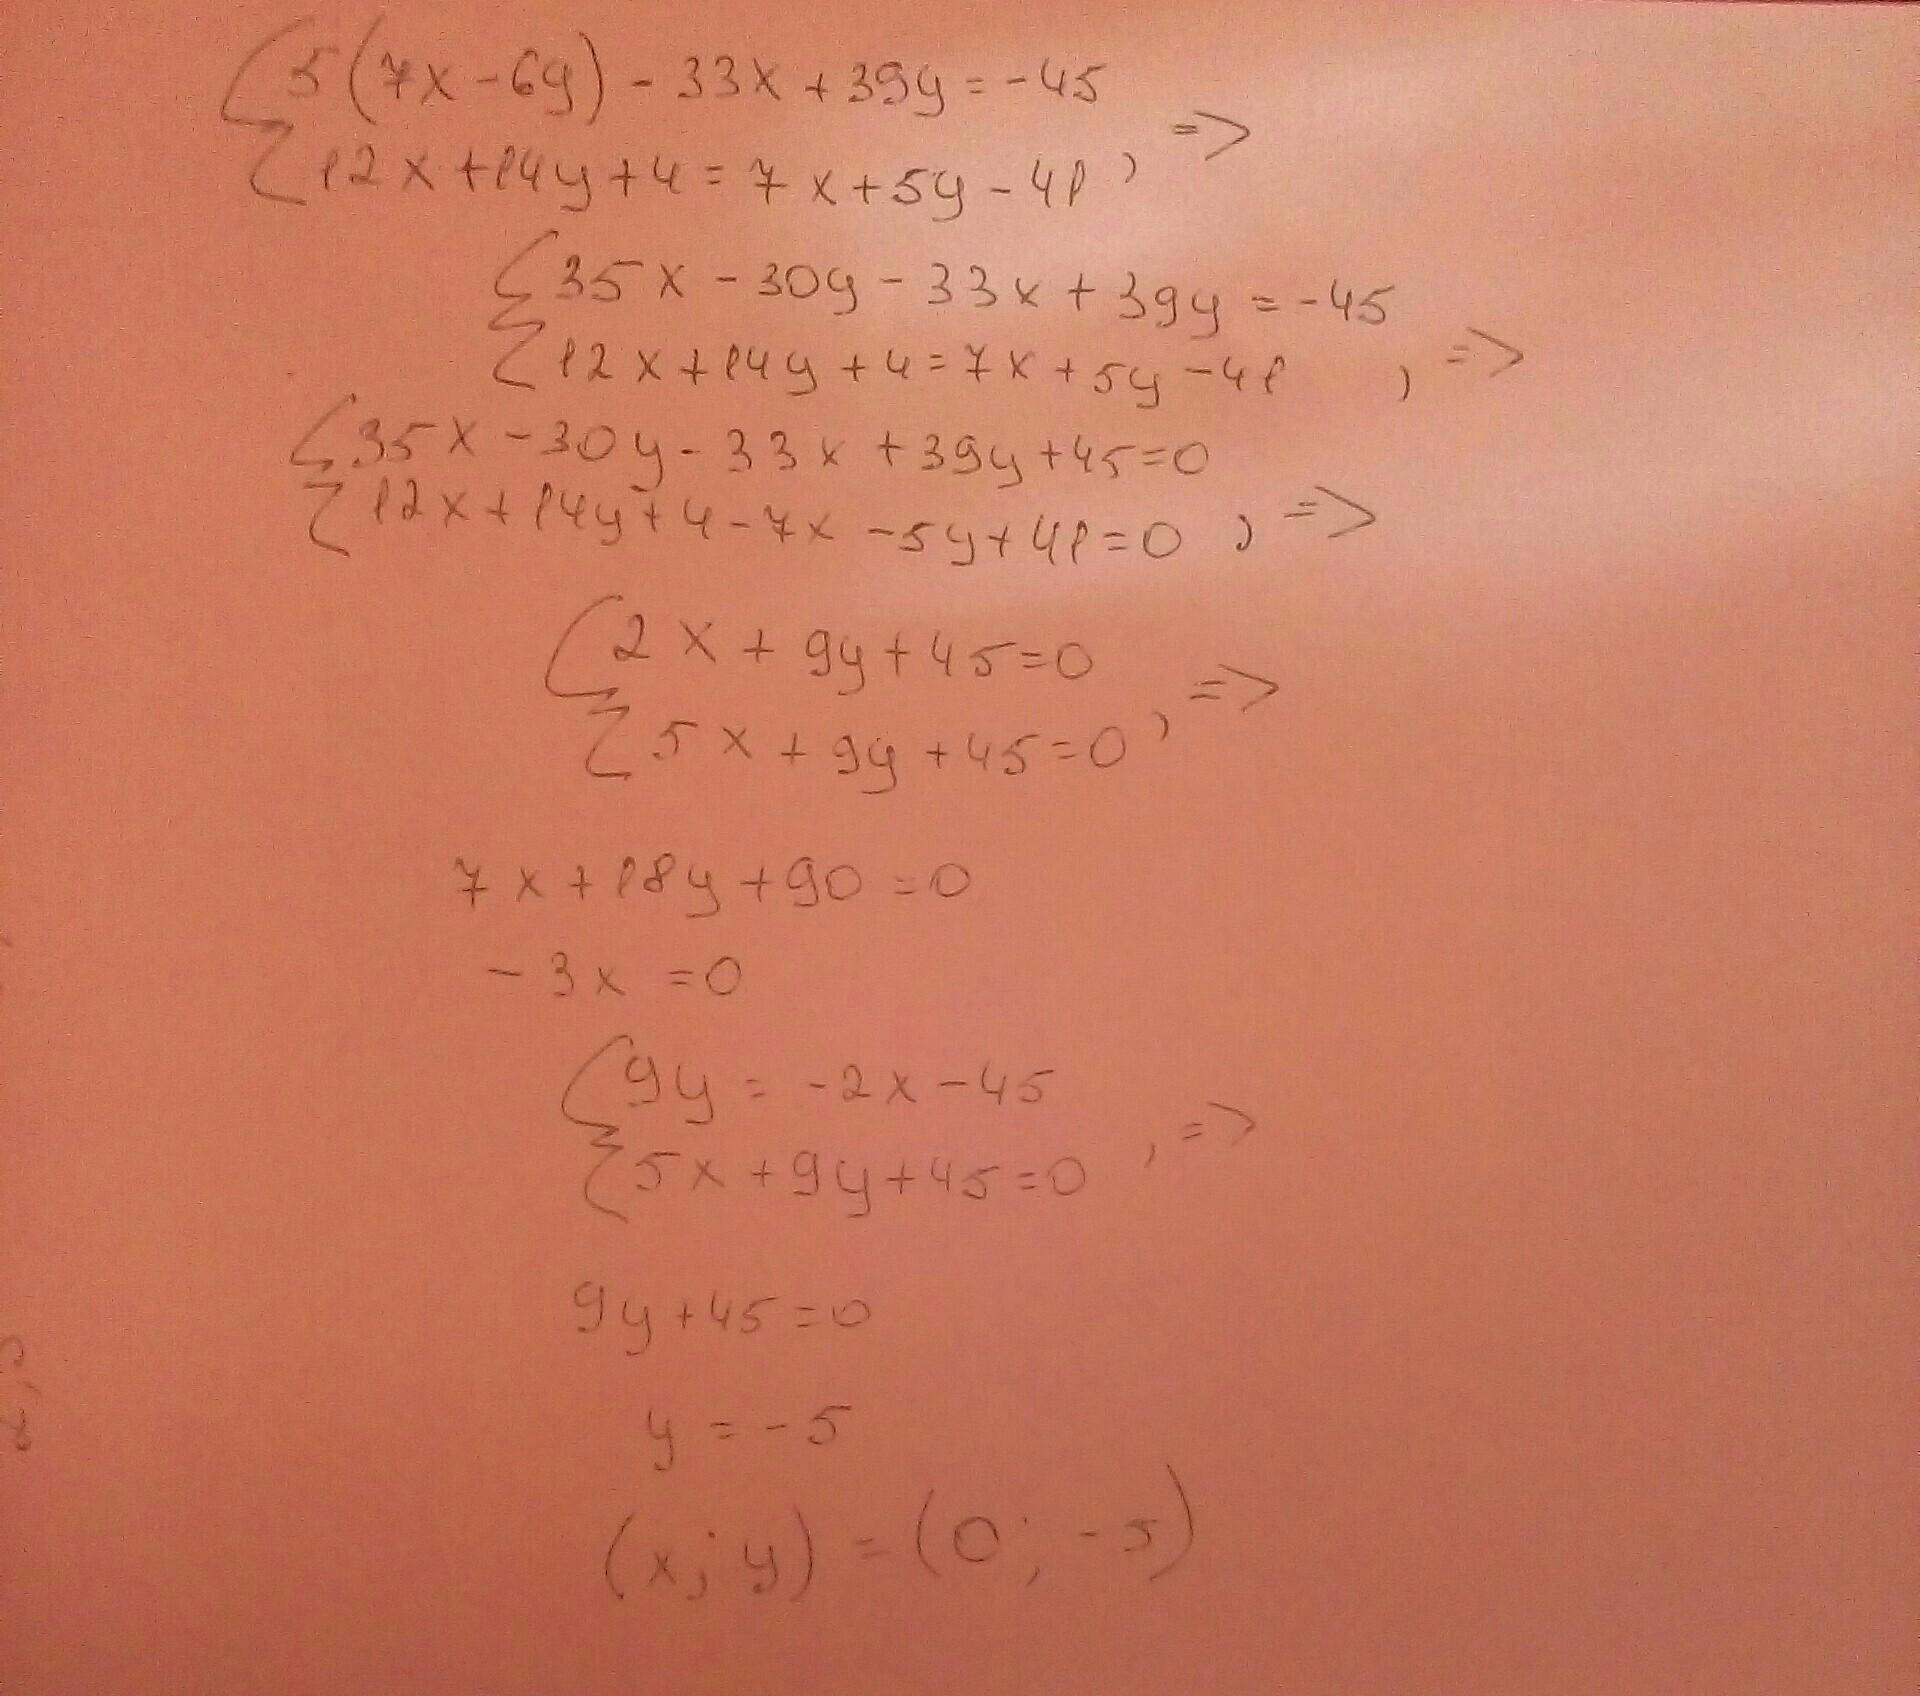 {5(7x-6y)-33x+39y=-45
{12x+14y+4=7x+5y-41, =>
{35x-30y-33x+39y=-45
{12x+14y+4=7x+5y-41, =>
{35x-30y-33x+39y+45=0
{12x+14y+4-7x-5y+41=0, =>
{2x+9y+45=0
{5x+9y+45=0, =>
7x+18y+90=0
-3x=0
{9y=-2x-45
{5x+9y+45=0, =>
9y+45=0
y=-5
(x;y)=(0;-5)